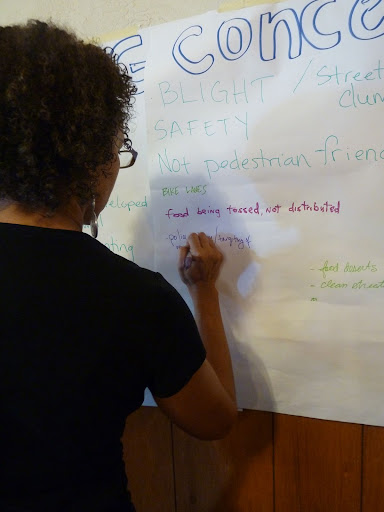 G CONCE
BLIGHT / Street
dum
SAFETY
Not pedestrian friend
BIKE LANES
eloped
food being tossed, not distributed
ting
- food deserts
- clean street